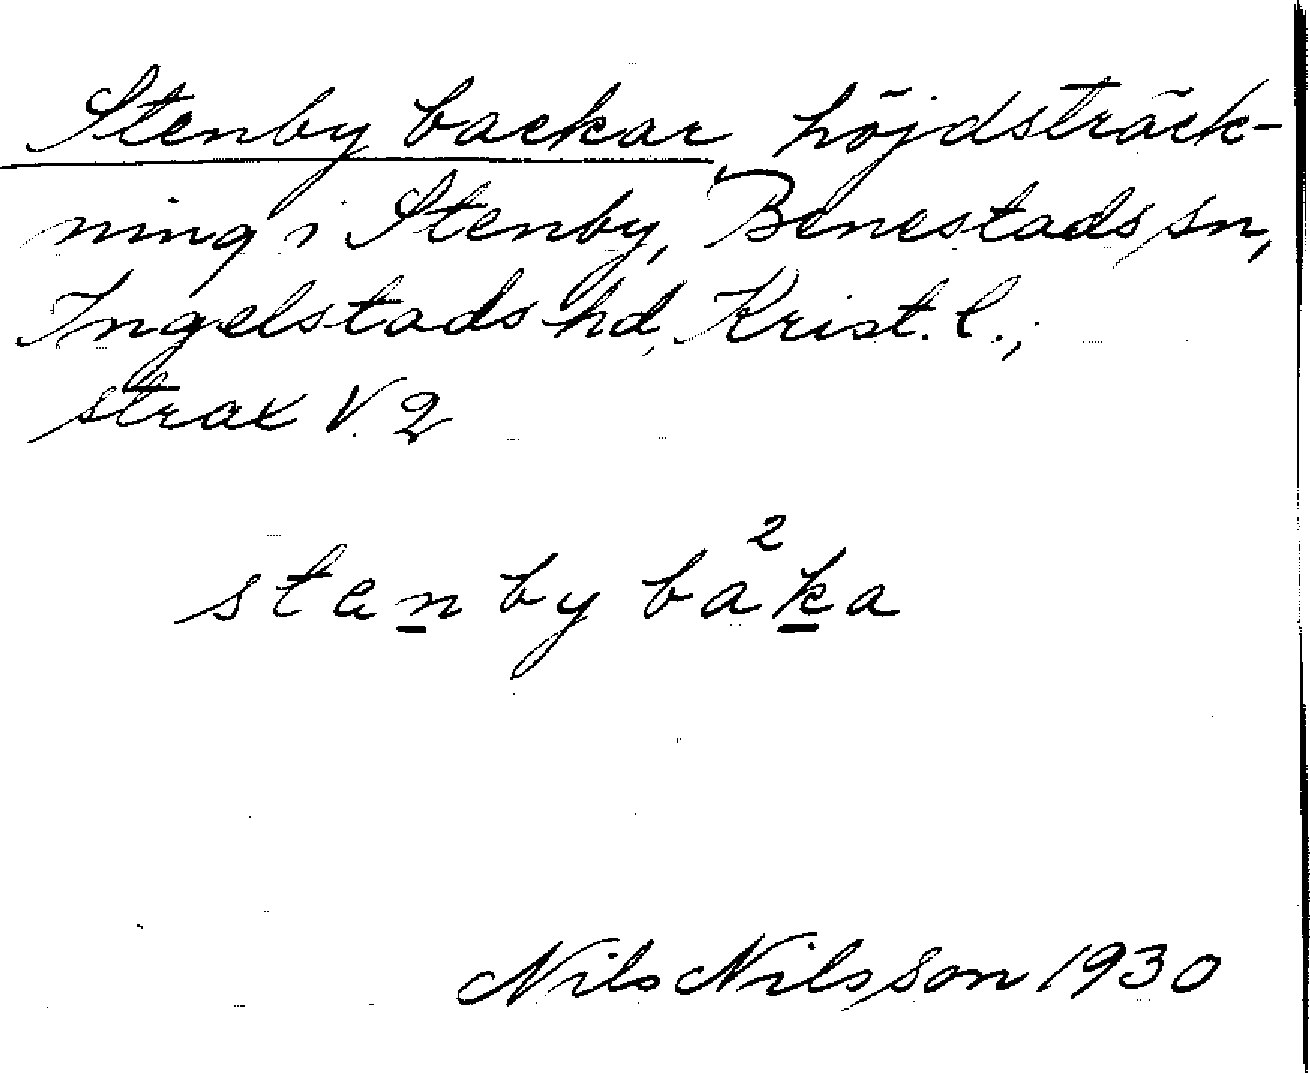 Stenby backar, höjdsträck-
ning i Stenby, Benestads sn,
Ingelstads hd, Krist. l.,
strax V. 2
stanby ba²ka
Nils Nilsson 1930